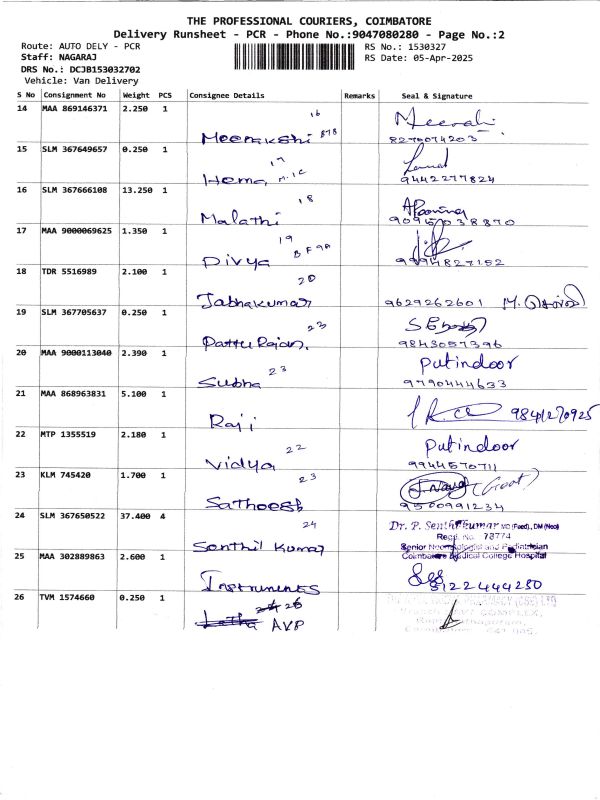 THE PROFESSIONAL COURIERS, COIMBATORE
Delivery Runsheet - PCR - Phone No.:9047080280 - Page No.:2
Route: AUTO DELY - PCR
RS No.: 1530327
Staff: NAGARAJ
RS Date: 05-Apr-2025
DRS No.: DCJB153032702
Vehicle: Van Delivery
S No Consignment No Weight PCS Consignee Details Remarks Seal & Signature
14 MAA 869146371 2.250 1
16
Meenakshi 878
8270074203
15 SLM 367649657 0.250 1
17
Hema M.TC
9442277824
16 SLM 367666108 13.250 1
18
Malathi
9095038870
17 MAA 9000069625 1.350 1
19
Divya BF9A
9994827152
18 TDR 5516989 2.100 1
20
Jabhakumar
9629262601
19 SLM 367705637 0.250 1
23
Pattu Rajan.
9843057396
20 MAA 9000113040 2.390 1
23
Subha
Putindoor
9790444633
21 MAA 868963831 5.100 1
Raji
22 MTP 1355519 2.180 1
22
Vidya
Putindoor
9944570711
23 KLM 745420 1.700 1
23
Satheesh
9500991234
24 SLM 367650522 37.400 4
24
Senthil Kumar
Dr. P. Senthilkumar MD (Paed), DM (Neo)
Regd. No. 78774
Senior Neonatologist and Pediatrician
Coimbatore Medical College Hospital
25 MAA 302889863 2.600 1
Instruments
8122444280
26 TVM 1574660 0.250 1
Latha
AVP